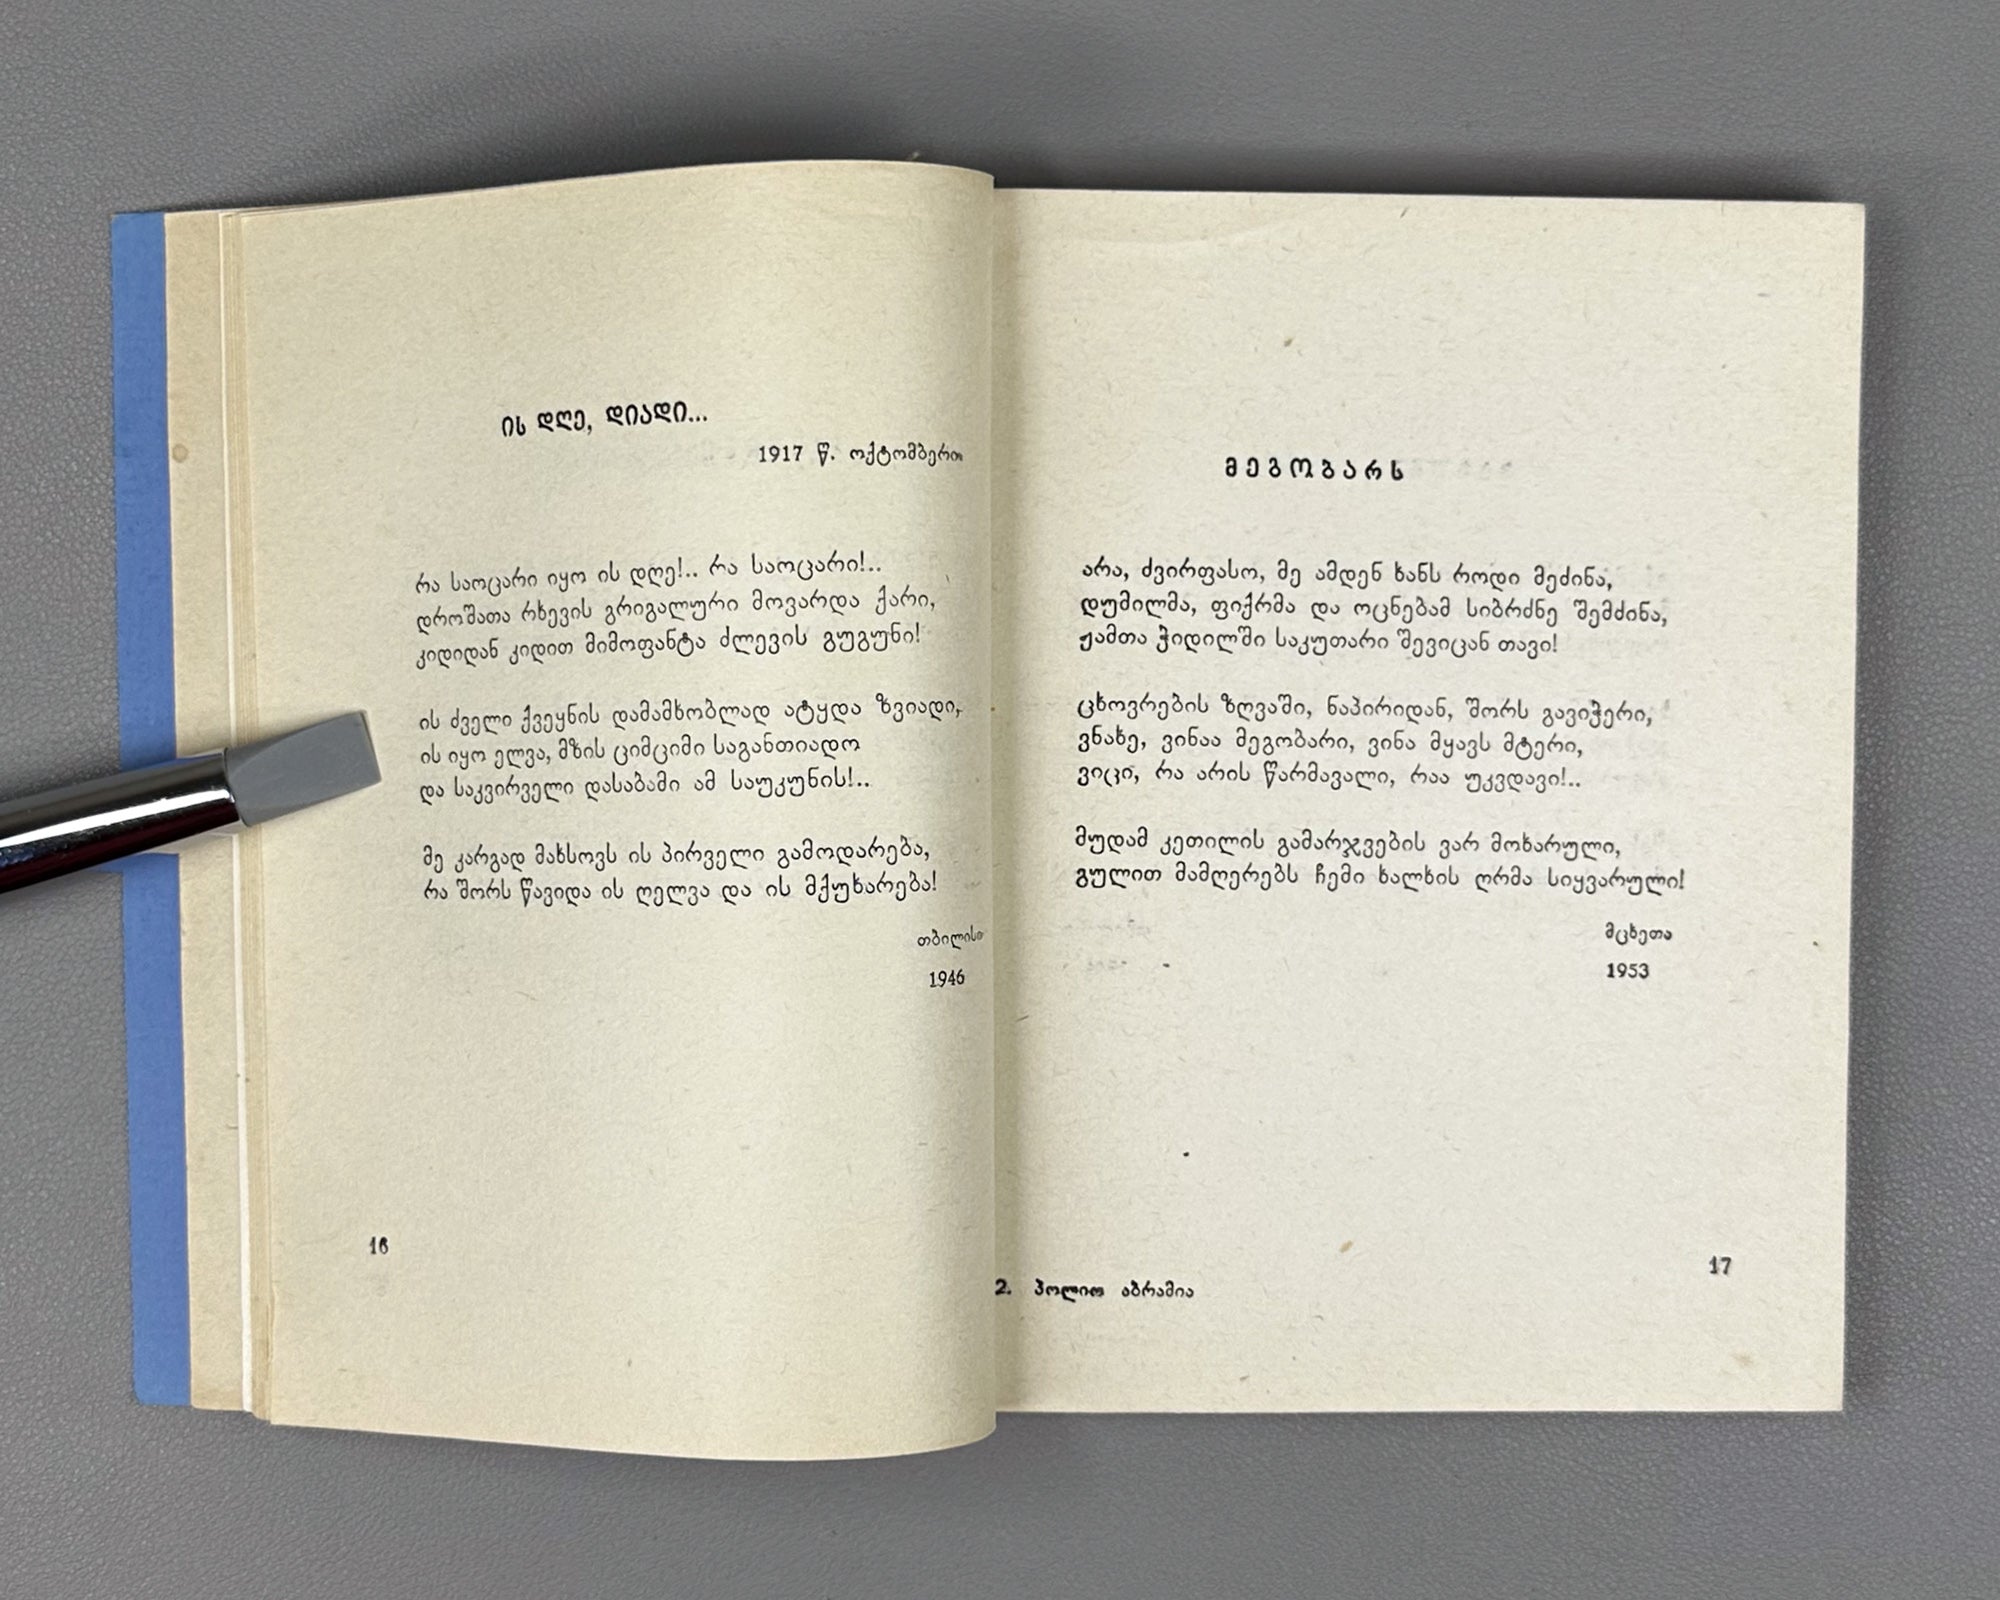 ის დღე, დიადი...
1917 წ. ოქტომბერი
რა საოცარი იყო ის დღე!.. რა საოცარი!..
დროშათა რხევის გრიგალური მოვარდა ქარი,
კიდიდან კიდით მიმოფანტა ძლევის გუგუნი!
ის ძველი ქვეყნის დამამხობლად ატყდა ზვიადი,
ის იყო ელვა, მზის ციმციმი საგანთიადო
და საკვირველი დასაბამი ამ საუკუნის!..
მე კარგად მახსოვს ის პირველი გამოდარება,
რა შორს წავიდა ის ღელვა და ის მქუხარება!
თბილისი
1946
16
მეგობარს
არა, ძვირფასო, მე ამდენ ხანს როდი მეძინა,
დუმილმა, ფიქრმა და ოცნებამ სიბრძნე შემძინა,
ჟამთა ჭიდილში საკუთარი შევიცან თავი!
ცხოვრების ზღვაში, ნაპირიდან, შორს გავიჭერი,
ვნახე, ვინაა მეგობარი, ვინა მყავს მტერი,
ვიცი, რა არის წარმავალი, რაა უკვდავი!..
მუდამ კეთილის გამარჯვების ვარ მოხარული,
გულით მამღერებს ჩემი ხალხის ღრმა სიყვარული!
მცხეთა
1953
17
2. პოლიო აბრამია